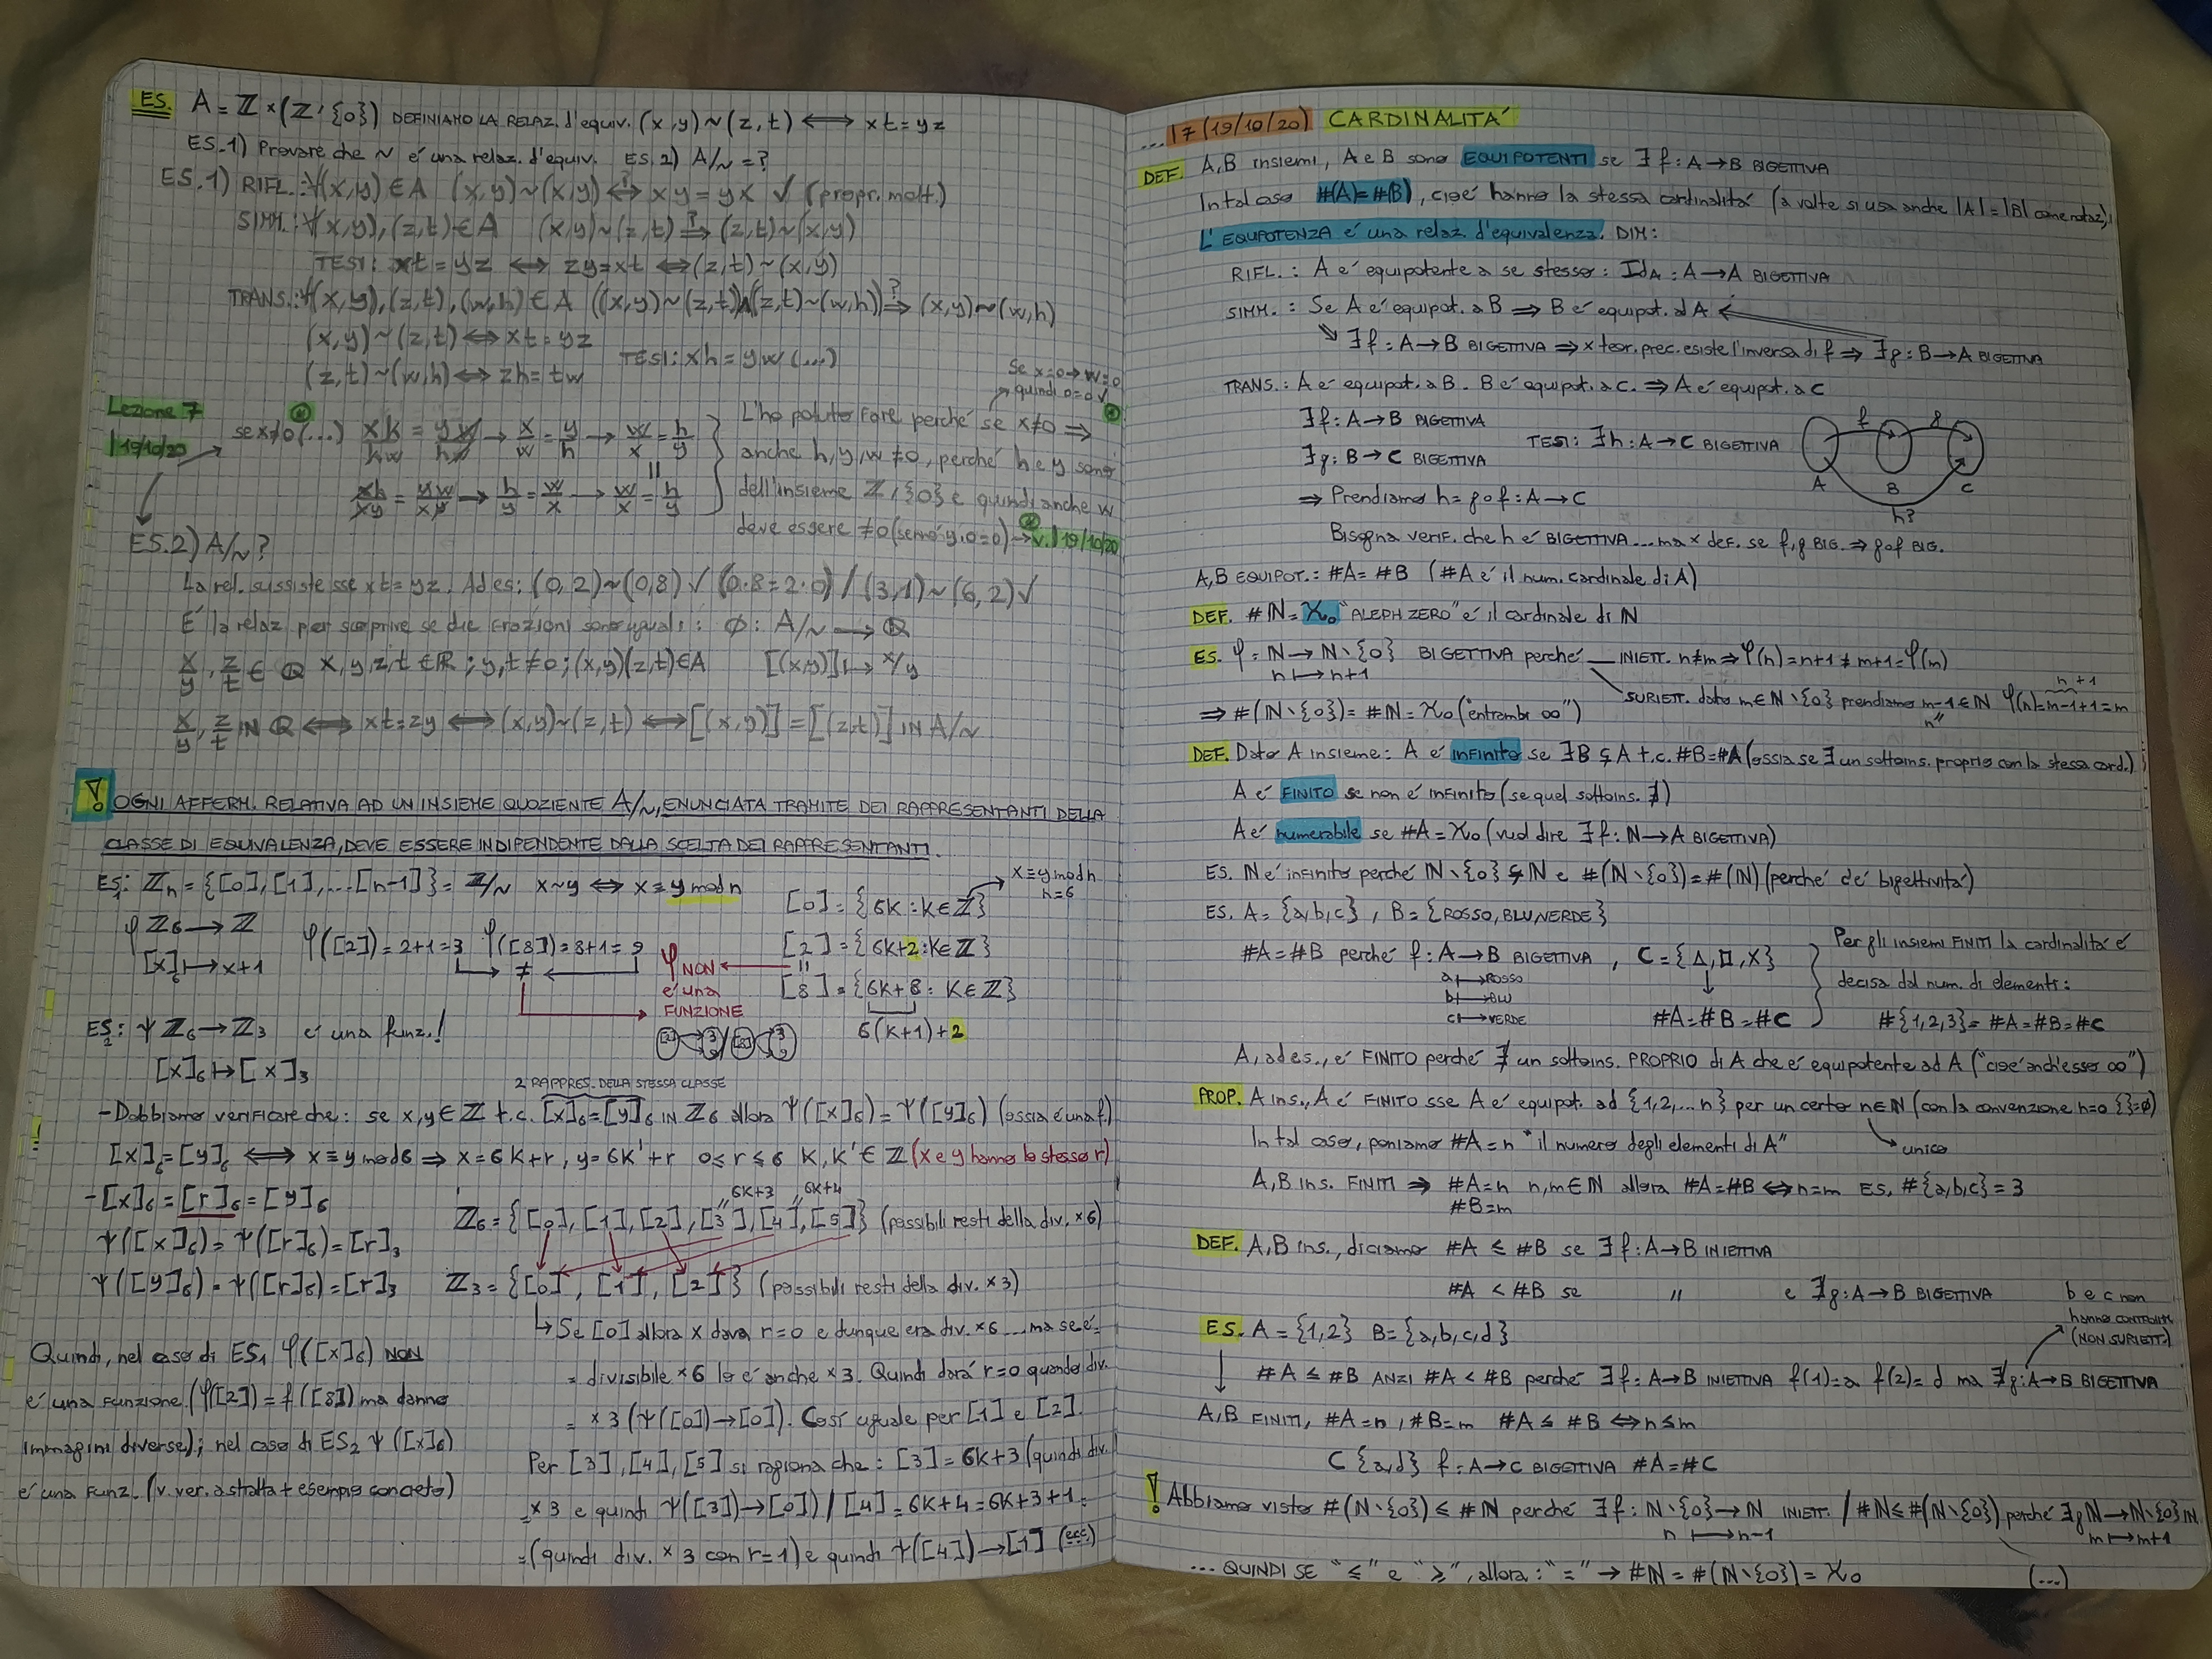 ES. A = ℤ × (ℤ∖{0}) DEFINIAMO LA RELAZ. d'equiv. (x,y) ~ (z,t) ⟺ xt = yz
ES.1) Provare che ~ é una relaz. d'equiv. ES.2) A/~ = ?
ES.1) RIFL.: ∀(x,y) ∈ A (x,y) ~ (x,y) ⟺? xy = yx √ (propr. molt.)
SIMM.: ∀(x,y),(z,t) ∈ A (x,y) ~ (z,t) ⟹? (z,t) ~ (x,y)
TESI: xt = yz ⟺ zy = xt ⟺ (z,t) ~ (x,y)
TRANS.: ∀(x,y),(z,t),(w,h) ∈ A ((x,y) ~ (z,t) ∧ (z,t) ~ (w,h)) ⟹? (x,y) ~ (w,h)
(x,y) ~ (z,t) ⟺ xt = yz
TESI: xh = yw (...)
(z,t) ~ (w,h) ⟺ zh = tw
Se x=0 → w=0
quindi 0=0 √
Lezione 7
19/10/20
se x≠0 (...) xh/hw = yw/hw → x/w = y/h → w/x = h/y
xh/xy = yw/xy → h/y = w/x → w/x = h/y
L'ho potuto fare perché se x≠0 ⟹
anche h,y,w ≠0, perché h e y sono
dell'insieme ℤ∖{0} e quindi anche w
deve essere ≠0 (sennó y·0=0) → v. 19/10/20
ES.2) A/~?
La rel. sussiste sse xt = yz. Ad es: (0,2)~(0,8) √ (0·8=2·0) / (3,1)~(6,2) √
É la relaz per scoprire se due frazioni sono uguali: ϕ: A/~ → ℚ
x/y, z/t ∈ ℚ x,y,z,t ∈ ℝ; y,t ≠0; (x,y)(z,t) ∈ A [(x,y)] ↦ x/y
x/y, z/t IN ℚ ⟺ xt = zy ⟺ (x,y)~(z,t) ⟺ [(x,y)] = [(z,t)] IN A/~
! OGNI AFFERM. RELATIVA AD UN INSIEME QUOZIENTE A/~, ENUNCIATA TRAMITE DEI RAPPRESENTANTI DELLA
CLASSE DI EQUIVALENZA, DEVE ESSERE INDIPENDENTE DALLA SCELTA DEI RAPPRESENTANTI.
ES1: ℤn = {[0],[1],...[n-1]} = ℤ/~ x~y ⟺ x ≡ y mod n
x ≡ y mod n
n=6
[0] = {6K : K∈ℤ}
φ ℤ6 → ℤ
[x]6 ↦ x+1
φ([2]) = 2+1 = 3 φ([8]) = 8+1 = 9
≠
φ NON
é una
FUNZIONE
[2] = {6K+2 : K∈ℤ}
=
[8] = {6K+8 : K∈ℤ}
6(K+1)+2
ES2: ψ ℤ6 → ℤ3 é una funz.!
[x]6 ↦ [x]3
2 RAPPRES. DELLA STESSA CLASSE
- Dobbiamo verificare che: se x,y ∈ ℤ t.c. [x]6 = [y]6 IN ℤ6 allora ψ([x]6) = ψ([y]6) (ossia é una f.)
[x]6 = [y]6 ⟺ x ≡ y mod 6 ⟹ x = 6K+r, y = 6K'+r 0 ≤ r ≤ 6 K,K' ∈ ℤ (x e y hanno lo stesso r)
- [x]6 = [r]6 = [y]6
ψ([x]6) = ψ([r]6) = [r]3
ψ([y]6) = ψ([r]6) = [r]3
6K+3 6K+4
ℤ6 = {[0],[1],[2],[3],[4],[5]} (possibili resti della div. × 6)
ℤ3 = {[0],[1],[2]} (possibili resti della div. × 3)
↳ Se [0] allora x dava r=0 e dunque era div. × 6 ... ma se é =
= divisibile × 6 lo é anche × 3. Quindi dará r=0 quando div.
= × 3 (ψ([0]) → [0]). Cosí uguale per [1] e [2].
Per [3],[4],[5] si ragiona che: [3] = 6K+3 (quindi div.
= × 3 e quindi ψ([3]) → [0]) / [4] = 6K+4 = 6K+3+1 =
= (quindi div. × 3 con r=1) e quindi ψ([4]) → [1] (ecc)
Quindi, nel caso di ES1 φ([x]6) NON
é una funzione (φ([2]) = f([8]) ma danno
immagini diverse); nel caso di ES2 ψ([x]6)
é una funz. (v. ver. astratta + esempio concreto)
... 7 (19/10/20) CARDINALITÁ
DEF. A,B insiemi, A e B sono EQUIPOTENTI se ∃ f: A→B BIGETTIVA
In tal caso #(A) = #(B), cioé hanno la stessa cardinalitá (a volte si usa anche |A| = |B| come notaz.)
L'EQUIPOTENZA é una relaz. d'equivalenza. DIM:
RIFL.: A é equipotente a se stesso: IdA: A→A BIGETTIVA
SIMM.: Se A é equipot. a B ⟹ B é equipot. ad A
∃ f: A→B BIGETTIVA ⟹ × teor. prec. esiste l'inversa di f ⟹ ∃ g: B→A BIGETTIVA
TRANS.: A é equipot. a B. B é equipot. a C. ⟹ A é equipot. a C
∃ f: A→B BIGETTIVA
TESI: ∃ h: A→C BIGETTIVA
∃ g: B→C BIGETTIVA
f g
A B C
h?
⟹ Prendiamo h = g∘f: A→C
Bisogna verif. che h é BIGETTIVA ... ma × def. se f,g BIG. ⟹ g∘f BIG.
A,B EQUIPOT.: #A = #B (#A é il num. cardinale di A)
DEF. #ℕ = ℵ0 "ALEPH ZERO" é il cardinale di ℕ
ES. φ = ℕ → ℕ∖{0} BIGETTIVA perché INIETT. n≠m ⟹ φ(n) = n+1 ≠ m+1 = φ(m)
n ↦ n+1
SURIETT. dato m∈ℕ∖{0} prendiamo m-1∈ℕ φ(n) = m-1+1 = m
n+1
n
⟹ #(ℕ∖{0}) = #ℕ = ℵ0 ("entrambi ∞")
DEF. Dato A insieme: A é infinito se ∃ B ⊊ A t.c. #B = #A (ossia se ∃ un sottoins. proprio con la stessa card.)
A é FINITO se non é infinito (se quel sottoins. ∄)
A é numerabile se #A = ℵ0 (vuol dire ∃ f: ℕ→A BIGETTIVA)
ES. ℕ é infinito perché ℕ∖{0} ⊊ ℕ e #(ℕ∖{0}) = #(ℕ) (perché c'é bigettivitá)
ES. A = {a,b,c}, B = {ROSSO, BLU, VERDE}
#A = #B perché f: A→B BIGETTIVA, C = {Δ,□,X}
a ↦ ROSSO
b ↦ BLU
c ↦ VERDE
#A = #B = #C
Per gli insiemi FINITI la cardinalitá é
decisa dal num. di elementi:
#{1,2,3} = #A = #B = #C
A, ad es., é FINITO perché ∄ un sottoins. PROPRIO di A che é equipotente ad A ("cioé anch'esso ∞")
PROP. A ins., A é FINITO sse A é equipot. ad {1,2,...n} per un certo n∈ℕ (con la convenzione n=0 {}=∅)
unico
In tal caso, poniamo #A = n "il numero degli elementi di A"
A,B ins. FINITI ⟹ #A=n n,m∈ℕ allora #A = #B ⟺ n=m ES. #{a,b,c} = 3
#B=m
DEF. A,B ins., diciamo #A ≤ #B se ∃ f: A→B INIETTIVA
#A < #B se " e ∄ g: A→B BIGETTIVA
b e c non
hanno CONTROIMM.
(NON SURIETT.)
ES. A = {1,2} B = {a,b,c,d}
#A ≤ #B ANZI #A < #B perché ∃ f: A→B INIETTIVA f(1)=a f(2)=d ma ∄ g: A→B BIGETTIVA
A,B FINITI, #A=n, #B=m #A ≤ #B ⟺ n ≤ m
C {a,d} f: A→C BIGETTIVA #A = #C
! Abbiamo visto #(ℕ∖{0}) ≤ #ℕ perché ∃ f: ℕ∖{0} → ℕ INIETT. / #ℕ ≤ #(ℕ∖{0}) perché ∃ g ℕ→ℕ∖{0} IN.
n ↦ n-1 m ↦ m+1
... QUINDI SE "≤" e "≥", allora: "=" → #ℕ = #(ℕ∖{0}) = ℵ0 (...)